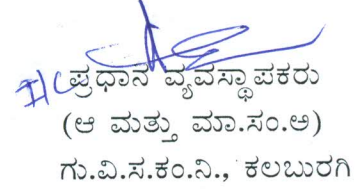 I/C ಪ್ರಧಾನ ವ್ಯವಸ್ಥಾಪಕರು
(ಆ ಮತ್ತು ಮಾ.ಸಂ.ಅ)
ಗು.ವಿ.ಸ.ಕಂ.ನಿ., ಕಲಬುರಗಿ